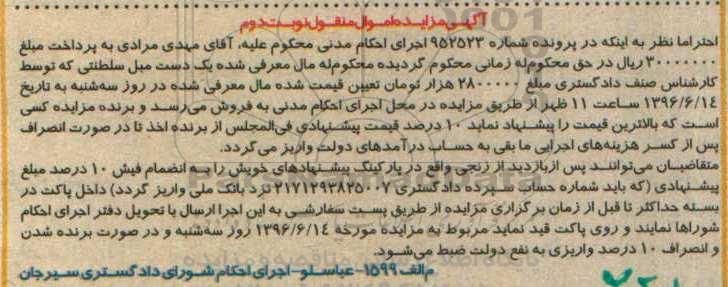 آگهی مزایده اموال منقول نوبت دوم
احتراما نظر به اینکه در پرونده شماره ۹۵۲۵۲۳ اجرای احکام مدنی محکوم علیه، آقای مهدی مرادی به پرداخت مبلغ
۳۰۰۰۰۰۰۰ ریال در حق محکوم‌له زمانی محکوم گردیده محکوم‌له مال معرفی شده یک دست مبل سلطنتی که توسط
کارشناس صنف دادگستری مبلغ ۲۸۰۰۰۰۰ هزار تومان تعیین قیمت شده مال معرفی شده در روز سه‌شنبه به تاریخ
۱۳۹۶/۶/۱۴ ساعت ۱۱ ظهر از طریق مزایده در محل اجرای احکام مدنی به فروش می‌رسد و برنده مزایده کسی
است که بالاترین قیمت را پیشنهاد نماید ۱۰ درصد قیمت پیشنهادی فی‌المجلس از برنده اخذ تا در صورت انصراف
پس از کسر هزینه‌های اجرایی مابقی به حساب درآمدهای دولت واریز می‌گردد.
متقاضیان می‌توانند پس از بازدید از زنجی واقع در پارکینگ پیشنهادهای خویش را به انضمام فیش ۱۰ درصد مبلغ
پیشنهادی (که باید شماره حساب سپرده دادگستری ۲۱۷۱۲۹۳۸۲۵۰۰۷ نزد بانک ملی واریز گردد) داخل پاکت در
بسته حداکثر تا قبل از زمان برگزاری مزایده از طریق پست سفارشی به این اجرا ارسال یا تحویل دفتر اجرای احکام
شوراها نمایند و روی پاکت قید نماید مربوط به مزایده مورخه ۱۳۹۶/۶/۱۴ روز سه‌شنبه و در صورت برنده شدن
و انصراف ۱۰ درصد واریزی به نفع دولت ضبط می‌شود.
م الف ۱۵۹۹- عباسلو- اجرای احکام شورای دادگستری سیرجان